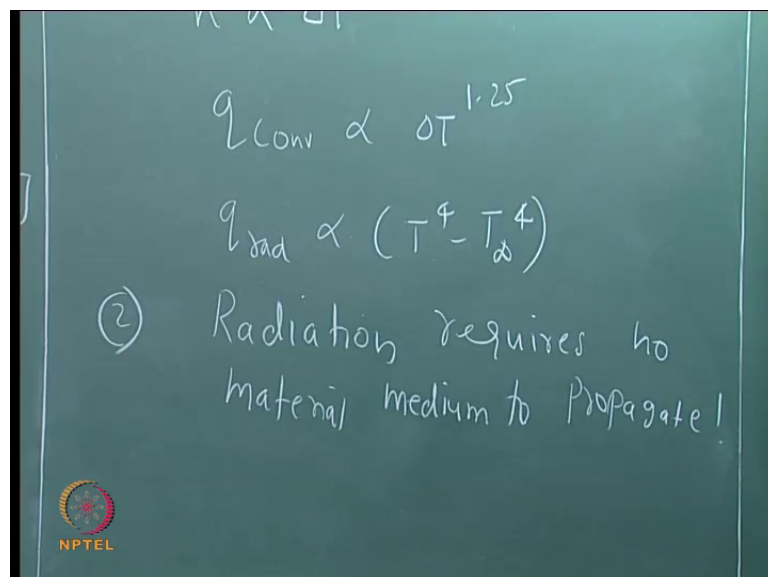 q conv ∝ ΔT^1.25
q rad ∝ (T^4 - T∞^4)
② Radiation requires no
material medium to propagate!
NPTEL